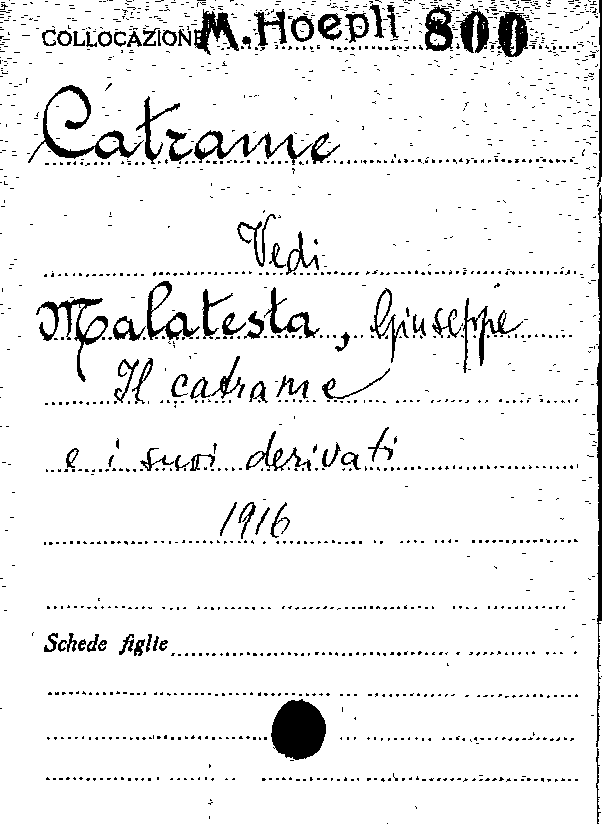 COLLOCAZIONE M. Hoepli 800
Catrame
Vedi
Malatesta, Giuseppe
Il catrame
e i suoi derivati
1916
Schede figlie